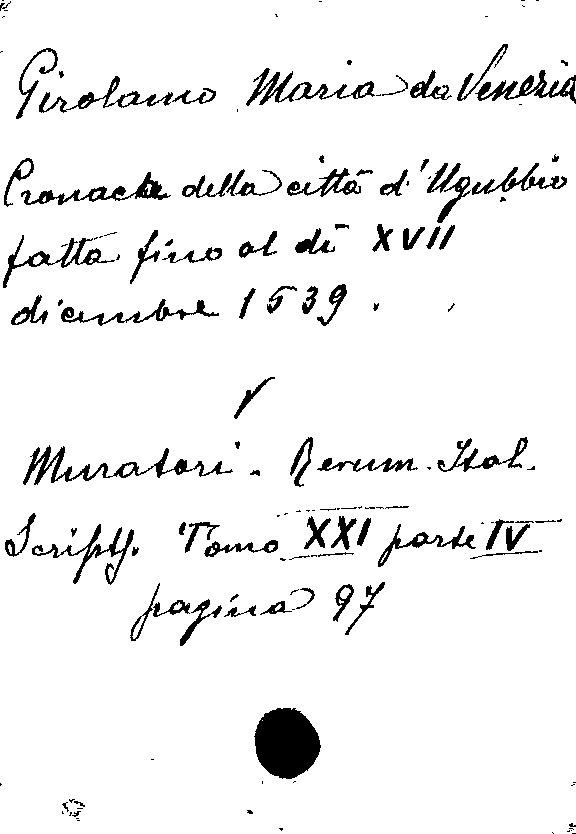 Girolamo Maria da Venezia
Cronaca della città d'Ugubbio
fatta fino al dì XVII
dicembre 1539.
V
Muratori - Rerum Ital.
Scripts. Tomo XXI parte IV
pagina 97